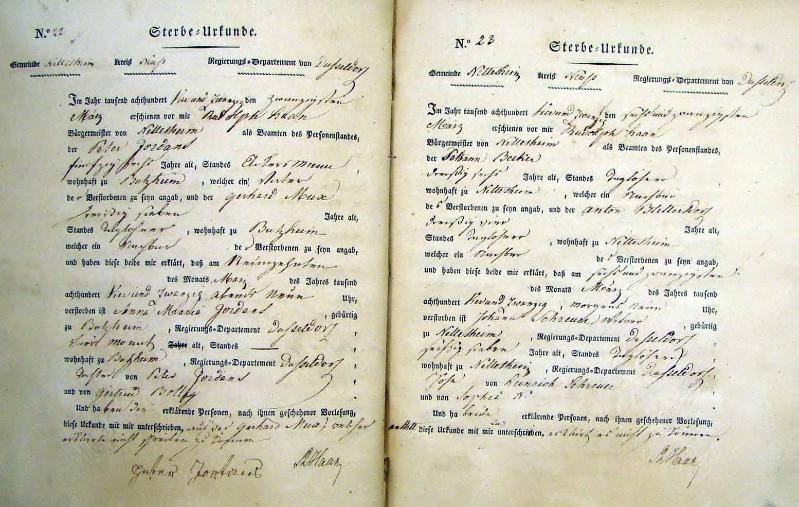 N.º 22 Sterbe-Urkunde.
Gemeinde Nettesheim Kreis Neuss Regierungs-Departement von Düsseldorf
Im Jahr tausend achthundert vier und zwanzig den zwanzigsten
März erschienen vor mir Rudolph Haan
Bürgermeister von Nettesheim als Beamten des Personenstandes,
der Peter Jordans
fünfzig sechs Jahre alt, Standes Ackersmann
wohnhaft zu Butzheim, welcher ein Vater
des Verstorbenen zu seyn angab, und der Gerhard Mux
dreißig sieben Jahre alt,
Standes Taglöhner, wohnhaft zu Butzheim
welcher ein Nachbar des Verstorbenen zu seyn angab,
und haben diese beide mir erklärt, daß am Neunzehnten
des Monats März des Jahres tausend
achthundert vier und zwanzig abends neun Uhr,
verstorben ist Anna Maria Jordans, gebürtig
zu Butzheim, Regierungs-Departement Düsseldorf
vier monat Jahre alt, Standes
wohnhaft zu Butzheim, Regierungs-Departement Düsseldorf
Tochter von Peter Jordans
und von Gertrud
Und haben die erklärende Personen, nach ihnen geschehener Vorlesung,
diese Urkunde mit mir unterschrieben, der Gerhard Mux, welcher
erklärte nicht schreiben zu können
Peter Jordans RHaan
N.º 23 Sterbe-Urkunde.
Gemeinde Nettesheim Kreis Neuss Regierungs-Departement von Düsseldorf
Im Jahr tausend achthundert vier und zwanzig den sechs und zwanzigsten
März erschienen vor mir Rudolph Haan
Bürgermeister von Nettesheim als Beamten des Personenstandes,
der Johann Becker
dreißig sechs Jahre alt, Standes Taglöhner
wohnhaft zu Nettesheim, welcher ein Nachbar
des Verstorbenen zu seyn angab, und der Anton
dreißig vier Jahre alt,
Standes Taglöhner, wohnhaft zu Nettesheim
welcher ein Nachbar des Verstorbenen zu seyn angab,
und haben diese beide mir erklärt, daß am sechs und zwanzigsten
des Monats März des Jahres tausend
achthundert vier und zwanzig, morgens neun Uhr,
verstorben ist Johann Schreuer, gebürtig
zu Nettesheim, Regierungs-Departement Düsseldorf
sieben Jahre alt, Standes Taglöhner
wohnhaft zu Nettesheim, Regierungs-Departement Düsseldorf
Sohn von Heinrich Schreuer
und von Sophia N.
Und haben beide erklärende Personen, nach ihnen geschehener Vorlesung,
diese Urkunde mit mir zu unterschrieben, erklärt es nicht zu können.
RHaan